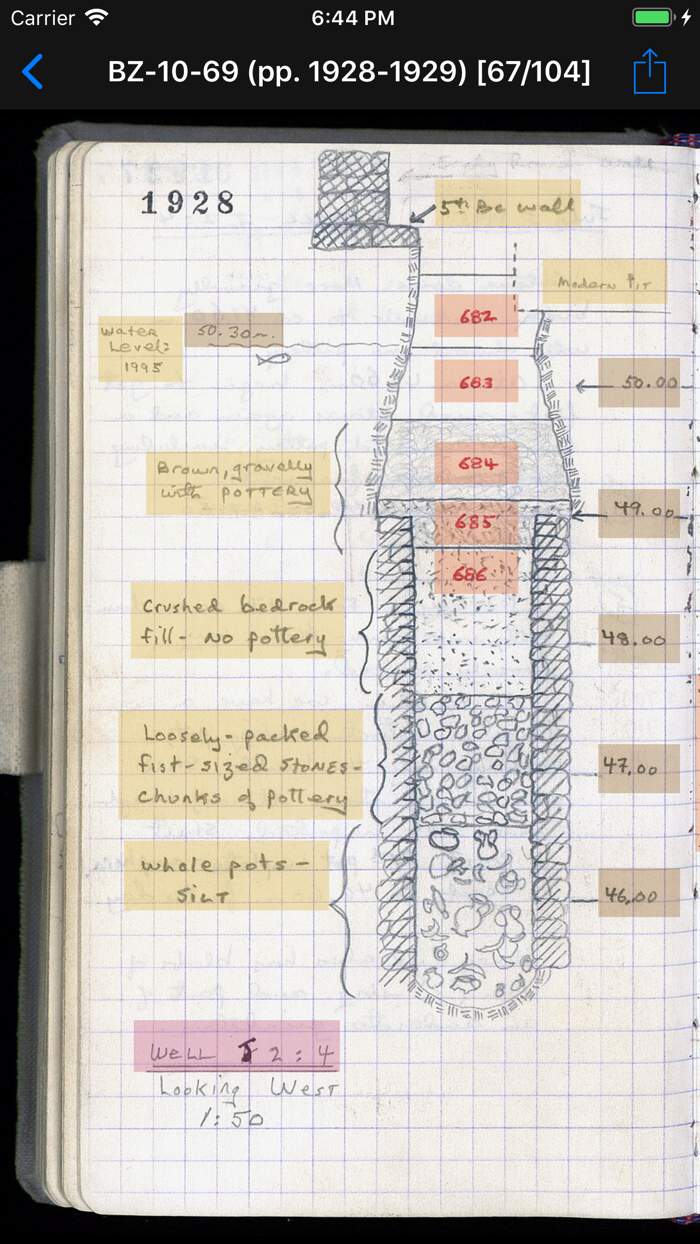 Carrier
6:44 PM
BZ-10-69 (pp. 1928-1929) [67/104]
1928
5th BC wall
Modern Pit
682
Water
Level:
1995
50.30m.
683
50.00
Brown, gravelly
with POTTERY
684
49.00
685
686
Crushed bedrock
fill - No pottery
48.00
Loosely-packed
fist-sized STONES -
chunks of pottery
47.00
whole pots -
SILT
46.00
WELL J 2 : 4
Looking West
1:50